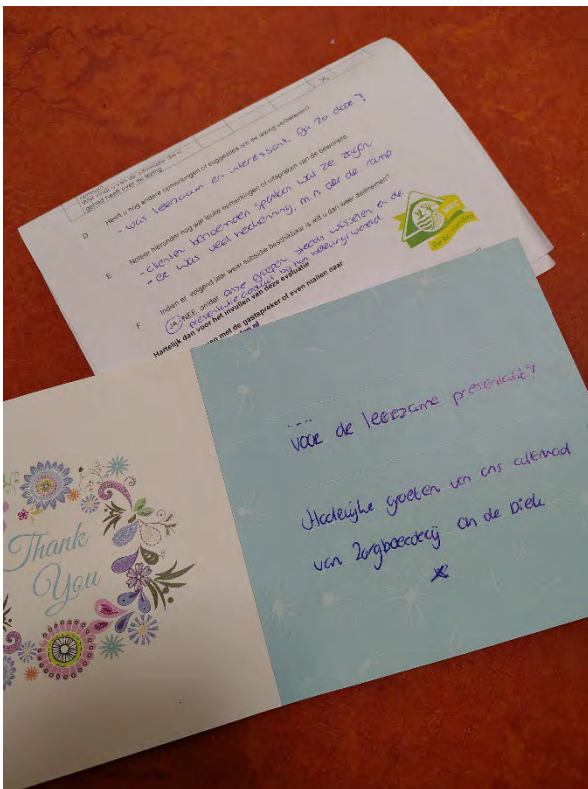 Wat vindt u van de informatie die u
gehad heeft over de lezing
D Heeft u nog andere opmerkingen of suggesties om de lezing verbeteren?
- was leerzaam en interessant. Ga zo door!
E Noteer hieronder nog wat leuke opmerkingen of uitspraken van de bewoners
- clienten benoemden spontaan wat ze zagen
- er was veel herkenning, m.n. der de ramp
F Indien er volgend jaar weer subsidie beschikbaar is wilt u dan weer deelnemen?
JA/NEE, omdat onze groepen steeds wisselen en de
presentatie aansluit bij hun belevingswereld
Hartelijk dan voor het invullen van deze evaluatie
met de gastspreker of even mailen naar
.nl
Thank
You
...
voor de leerzame presentatie!
Hartelijke groeten van ons allemaal
van Zorgboerderij an de Diek
x